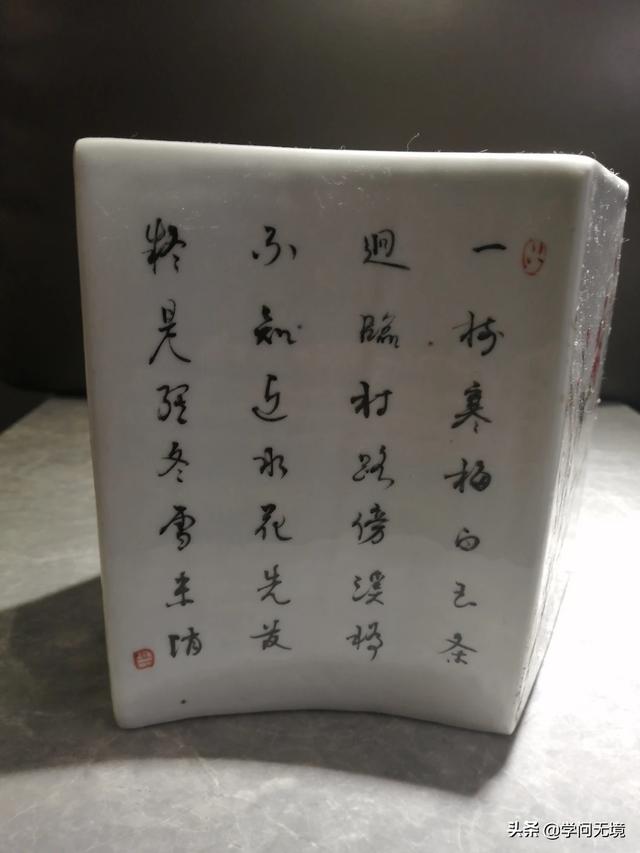 一树寒梅白玉条
逈臨村路傍溪橋
不知近水花先发
疑是經冬雪未销
头条 @学问无境